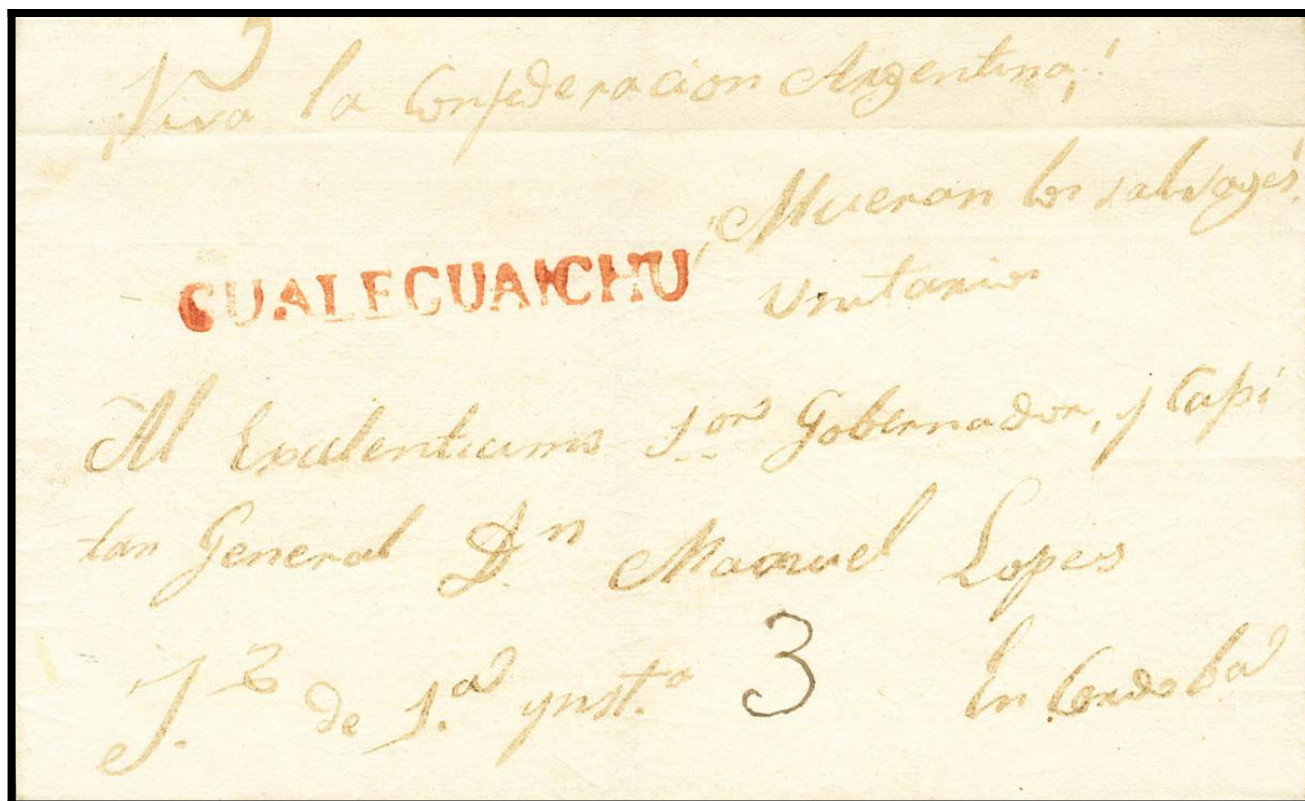 ¡Viva la Confederacion Argentina!
¡Mueran los salvages
Unitarios
GUALEGUAICHU
Al Excelenticimo S.or Gobernador, y Capi
tan General D.n Manuel Lopes
J.z de 1.a ynst.a 3 En Cordoba